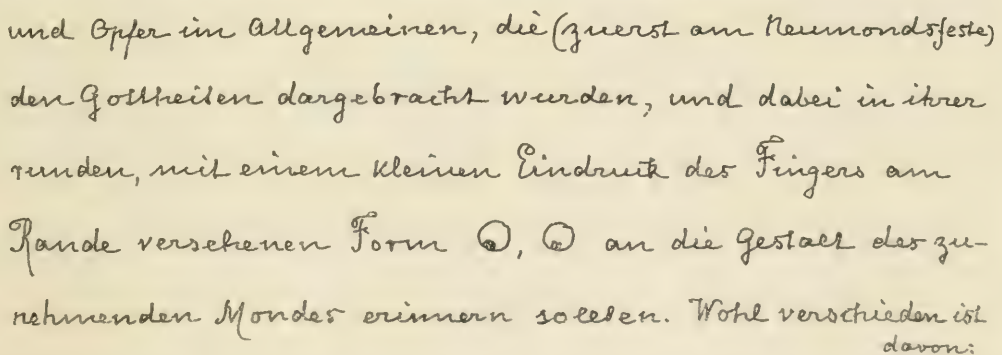 und Opfer im Allgemeinen, die (zuerst am Neumondsfeste)
den Gottheiten dargebracht wurden, und dabei in ihrer
runden, mit einem kleinen Eindruck des Fingers am
Rande versehenen Form , an die Gestalt des zu-
nehmenden Mondes erinnern sollten. Wohl verschieden ist
davon: